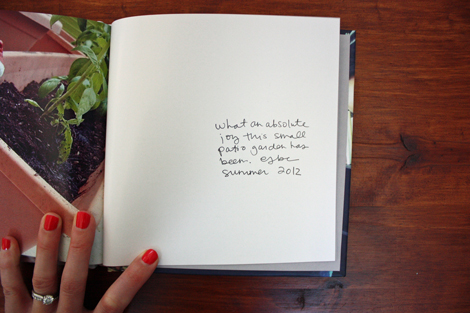 what an absolute
joy this small
patio garden has
been. esbc
summer 2012